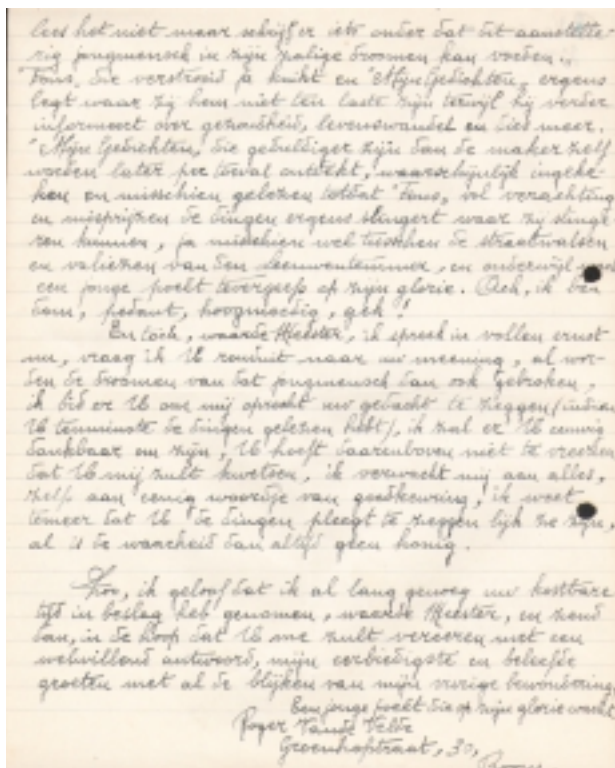 lees het niet maar schrijf er iets onder dat dit aanstelle-
rig jongmensch in zijn zalige droomen kan voeden..
Fons, die verstrooid ja knikt en "Mijn Gedichten" ergens
legt waar zij hem niet ten laste zijn terwijl hij verder
informeert over gezondheid, levenswandel en dies meer.
"Mijn Gedichten, die geduldiger zijn dan de maker zelf
worden later per toeval ontdekt, waarschijnlijk ingeke-
ken en misschien gelezen totdat "Fons, vol verachting
en misprijzen de dingen ergens slingert waar zij slinge
ren kunnen, ja misschien wel tusschen de straatwalsen
en valiezen van den Leeuwentemmer, en onderwijl
een jonge poëet tevergeefs op zijn glorie. Ach, ik ben
dom, pedant, hoogmoedig, gek!
En toch, waarde Meester, ik spreek in vollen ernst
nu, vraag ik U ronduit naar uw meening, al wor-
den de droomen van dat jongmensch dan ook gebroken,
ik bid er U om mij oprecht uw gedacht te zeggen (indien
U tenminste de dingen gelezen hebt), ik zal er U eeuwig
dankbaar om zijn, U hoeft daarenboven niet te vreezen
dat U mij zult kwetsen, ik verwacht mij aan alles,
zelfs aan eenig woordje van goedkeuring, ik weet
temeer dat U "de dingen pleegt te zeggen lijk ze zijn,
al is de waarheid dan altijd geen honig.
Zoo, ik geloof dat ik al lang genoeg uw kostbare
tijd in beslag heb genomen, waarde Meester, en zend
dan, in de hoop dat U me zult vereeren met een
welwillend antwoord, mijn eerbiedigste en beleefde
groeten met al de blijken van mijn vurige bewondering
Een jonge poëet die op zijn glorie wacht
Roger Vande Velde
Groenhofstraat, 30,
Boom